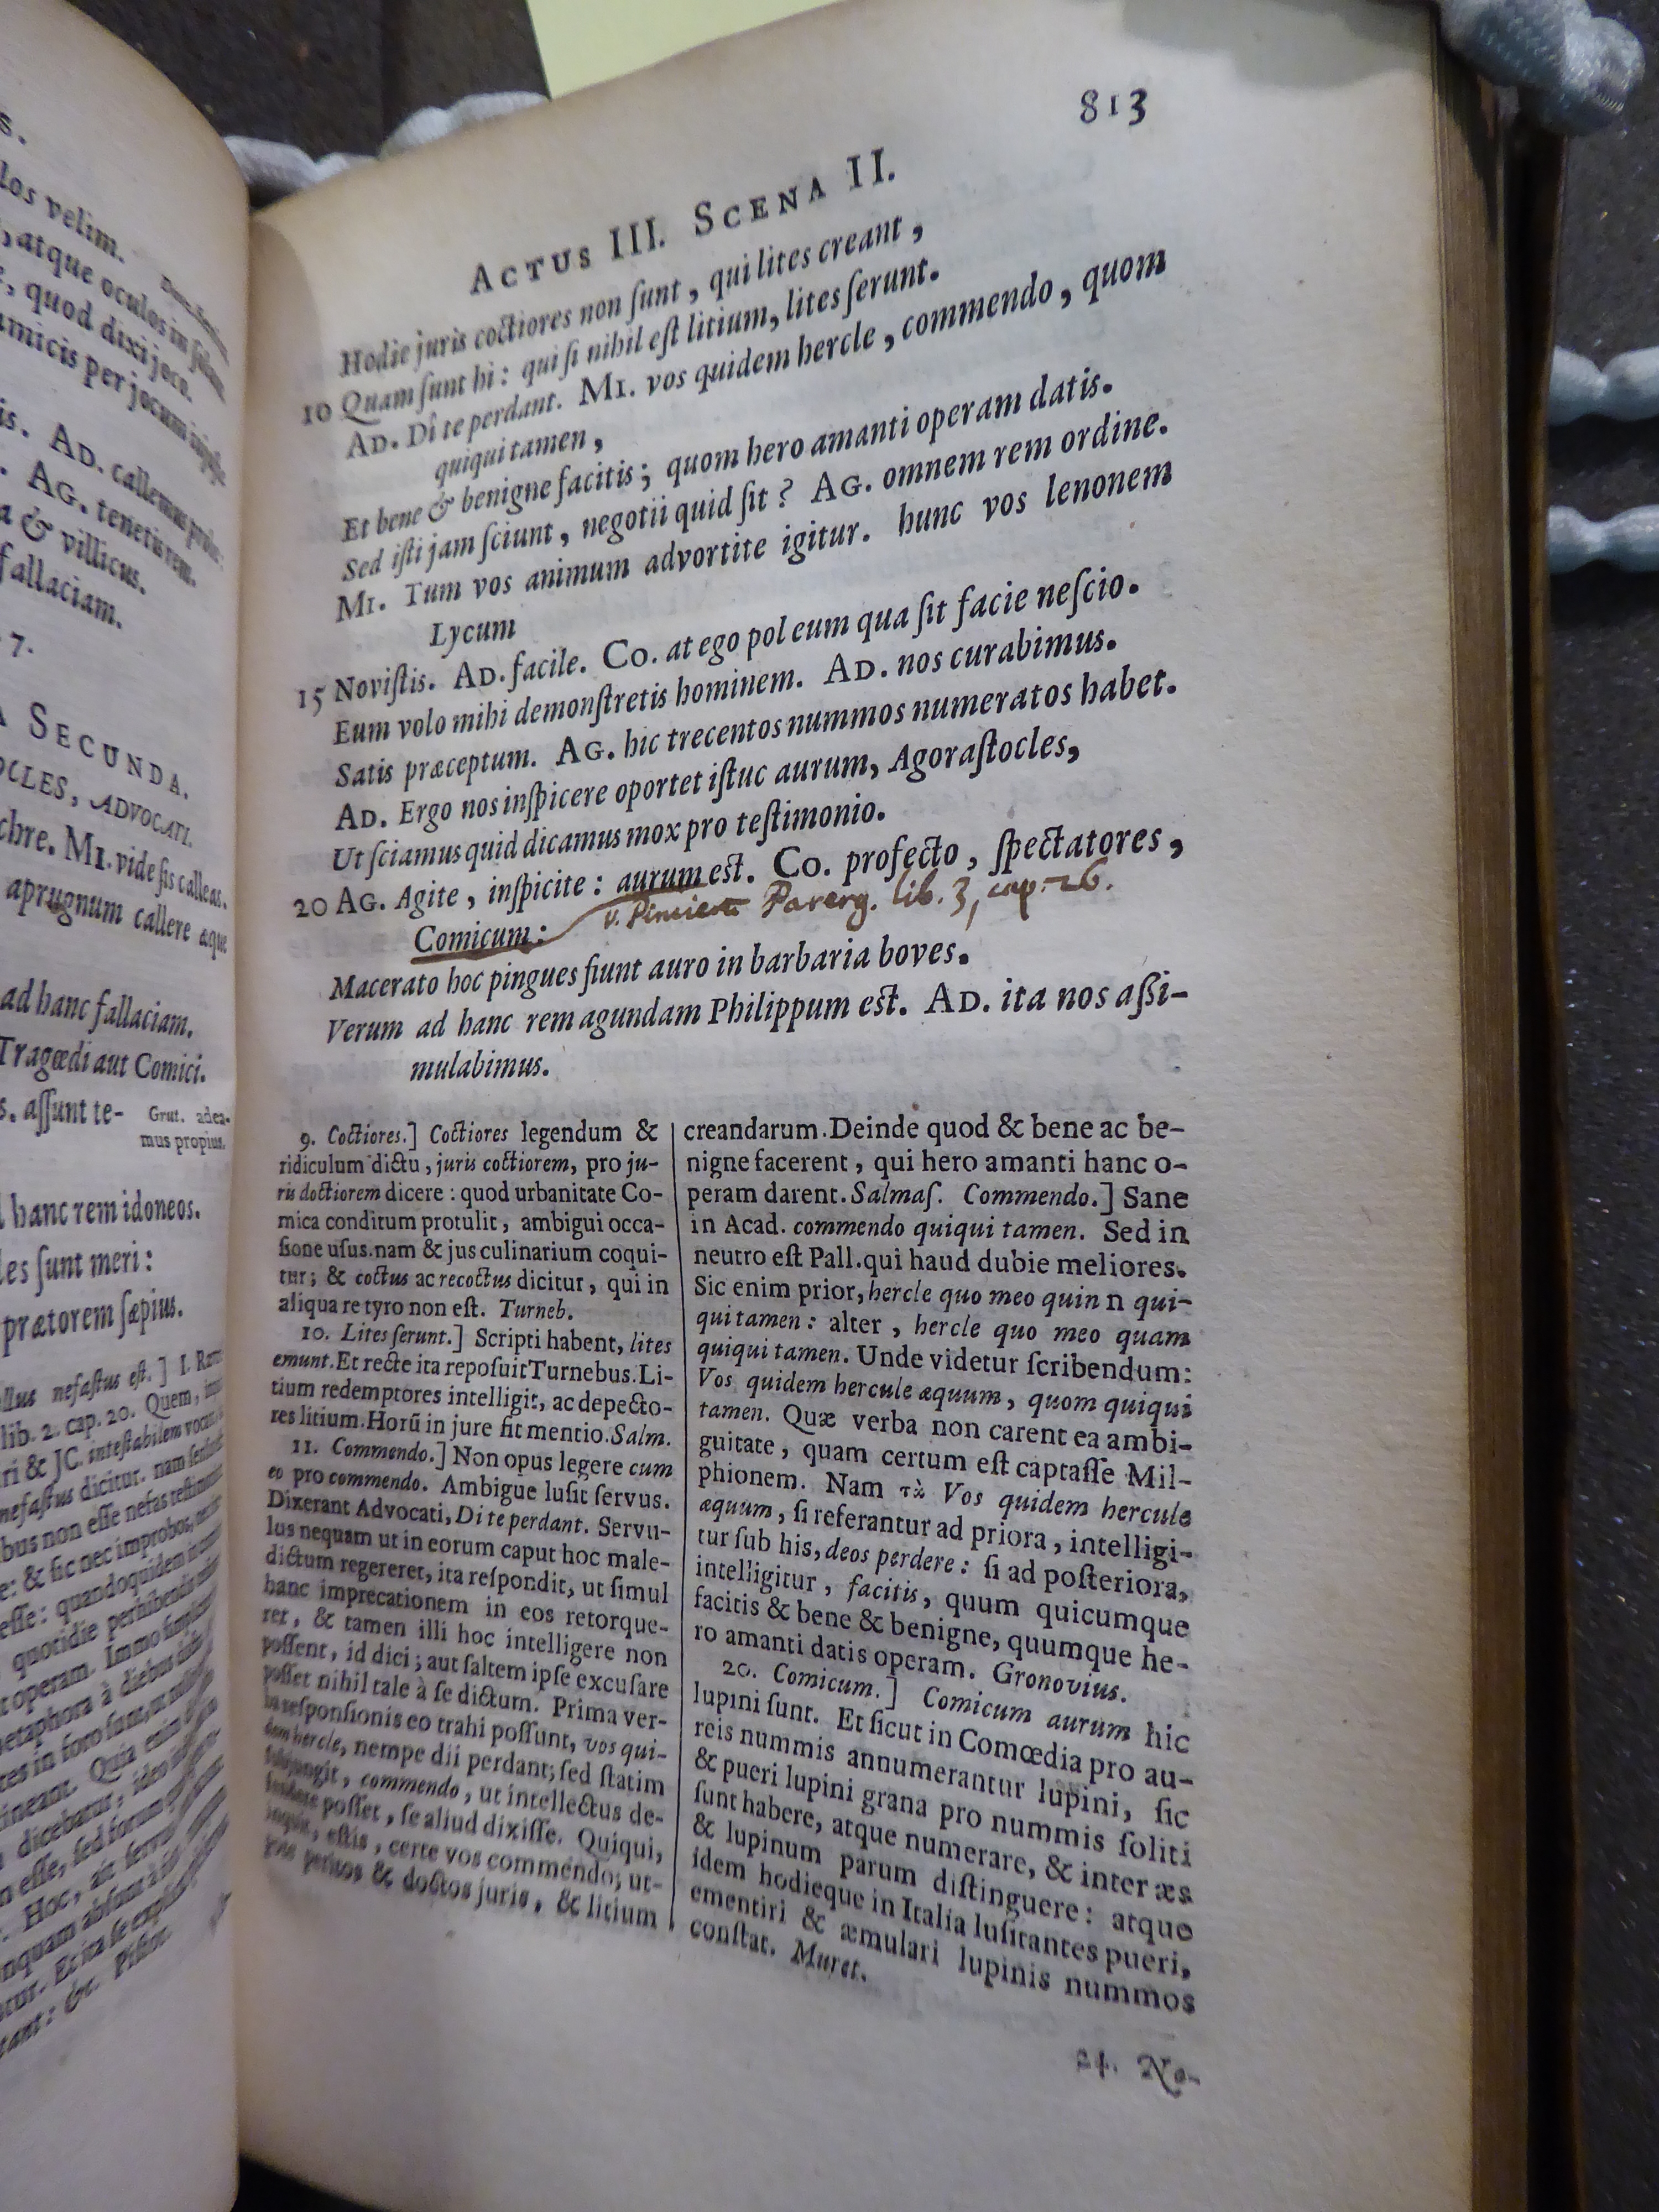 s.
los velim.
, atque oculos in
, quod dixi joco.
amicis per jocum
is. AD. callemus
. AG. tenetis rem.
a & villicus.
fallaciam.
7.
A SECUNDA.
OCLES, ADVOCATI.
chre. MI. vide sis calleas.
aprugnum callere æque
ad hanc fallaciam.
Tragœdi aut Comici.
s. assunt te-
Grut. adea-
mus propius.
hanc rem idoneos.
les sunt meri:
prætorem sæpius.
llus nefastus est.] I.
lib. 2. cap. 20. Quem,
ri & JC. intestabilem
nefastus dicitur. nam
bus non esse nefas
e: & sic nec improbos,
esse: quandoquidem
quotidie perhibendis
operam. Immo
etaphora à diebus
tes in foro sunt,
tineant. Quia enim
dicebatur, ideo
esse, sed forum
. Hoc, ait servus
nquam absunt à
tur. Et ita se
tant: &c.
813
ACTUS III. SCENA II.
Hodie juris coctiores non sunt, qui lites creant,
10 Quam sunt hi: qui si nihil est litium, lites serunt.
AD. Di te perdant. MI. vos quidem hercle, commendo, quom
quiqui tamen,
Et bene & benigne facitis; quom hero amanti operam datis.
Sed isti jam sciunt, negotii quid sit? AG. omnem rem ordine.
MI. Tum vos animum advortite igitur. hunc vos lenonem
Lycum
15 Novistis. AD. facile. CO. at ego pol eum qua sit facie nescio.
Eum volo mihi demonstretis hominem. AD. nos curabimus.
Satis præceptum. AG. hic trecentos nummos numeratos habet.
AD. Ergo nos inspicere oportet istuc aurum, Agorastocles,
Ut sciamus quid dicamus mox pro testimonio.
20 AG. Agite, inspicite: aurum est. CO. profecto, spectatores,
Comicum: v. Parerg. lib. 3, cap. 26.
Macerato hoc pingues fiunt auro in barbaria boves.
Verum ad hanc rem agundam Philippum est. AD. ita nos assi-
mulabimus.
9. Coctiores.] Coctiores legendum &
ridiculum dictu, juris coctiorem, pro ju-
ris doctiorem dicere: quod urbanitate Co-
mica conditum protulit, ambigui occa-
sione usus. nam & jus culinarium coqui-
tur; & coctus ac recoctus dicitur, qui in
aliqua re tyro non est. Turneb.
10. Lites serunt.] Scripti habent, lites
emunt. Et recte ita reposuit Turnebus. Li-
tium redemptores intelligit, ac depecto-
res litium. Horũ in jure fit mentio. Salm.
11. Commendo.] Non opus legere cum
eo pro commendo. Ambigue lusit servus.
Dixerant Advocati, Di te perdant. Servu-
lus nequam ut in eorum caput hoc male-
dictum regereret, ita respondit, ut simul
hanc imprecationem in eos retorque-
ret, & tamen illi hoc intelligere non
possent, id dici; aut saltem ipse excusare
posset nihil tale à se dictum. Prima ver-
ba responsionis eo trahi possunt, vos qui-
dem hercle, nempe dii perdant; sed statim
subjungit, commendo, ut intellectus de-
fendere posset, se aliud dixisse. Quiqui,
inquit, estis, certe vos commendo; ut-
pote peritos & doctos juris, & litium
creandarum. Deinde quod & bene ac be-
nigne facerent, qui hero amanti hanc o-
peram darent. Salmas. Commendo.] Sane
in Acad. commendo quiqui tamen. Sed in
neutro est Pall. qui haud dubie meliores.
Sic enim prior, hercle quo meo quin n qui-
qui tamen: alter, hercle quo meo quam
quiqui tamen. Unde videtur scribendum:
Vos quidem hercule æquum, quom quiqui
tamen. Quæ verba non carent ea ambi-
guitate, quam certum est captasse Mil-
phionem. Nam τὰ Vos quidem hercule
æquum, si referantur ad priora, intelligi-
tur sub his, deos perdere: si ad posteriora,
intelligitur, facitis, quum quicumque
facitis & bene & benigne, quumque he-
ro amanti datis operam. Gronovius.
20. Comicum.] Comicum aurum hic
lupini sunt. Et sicut in Comœdia pro au-
reis nummis annumerantur lupini, sic
& pueri lupini grana pro nummis soliti
sunt habere, atque numerare, & inter æs
& lupinum parum distinguere: atque
idem hodieque in Italia lusitantes pueri,
ementiri & æmulari lupinis nummos
constat. Muret.
24. No-